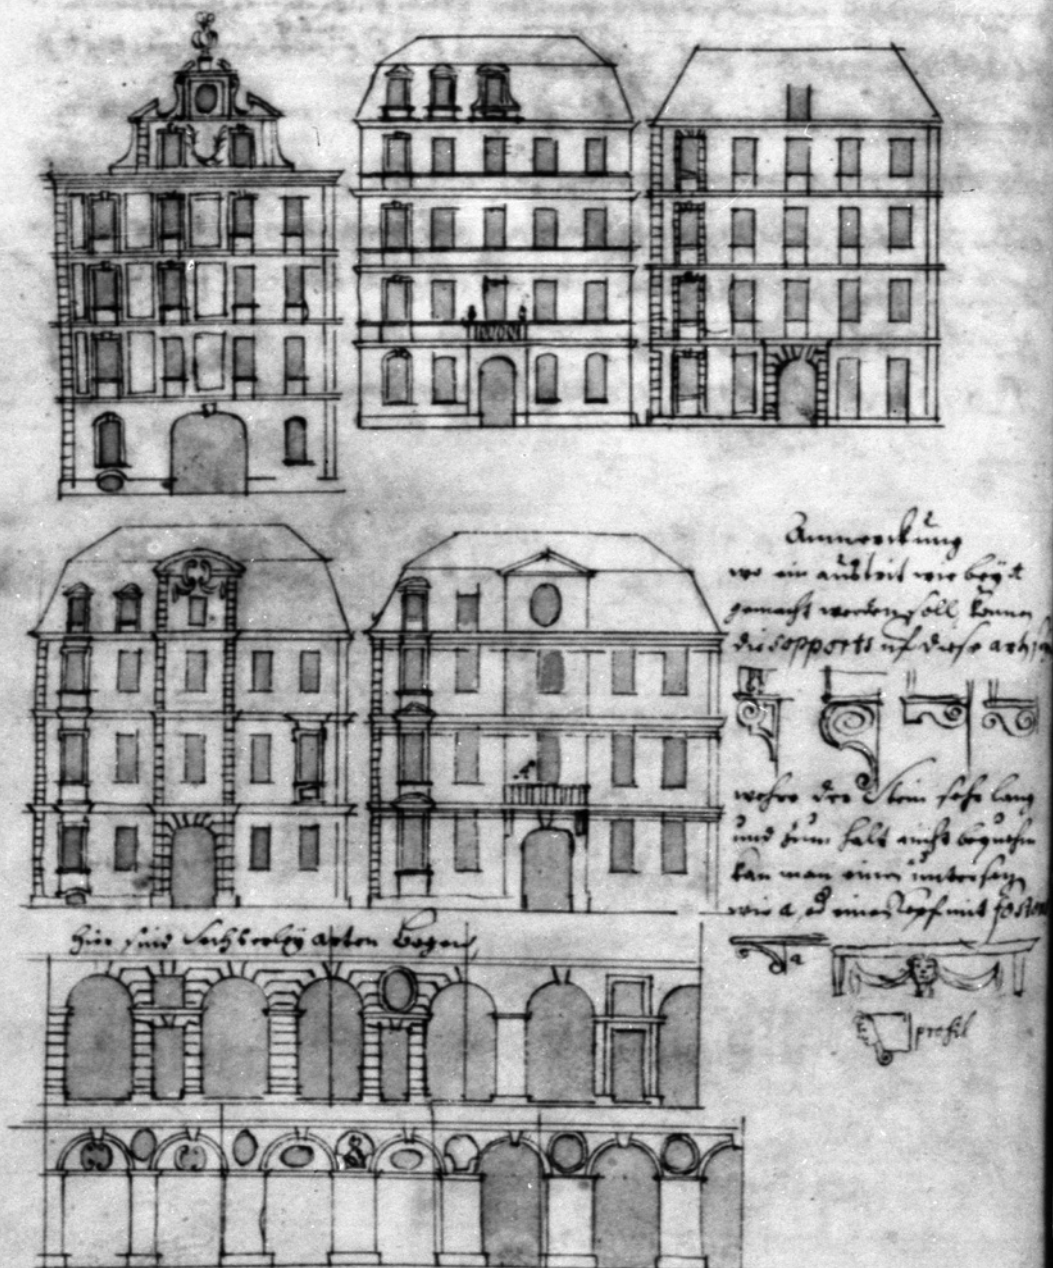 Anmerckung
wo ein austrit wie bey t
gemacht werden soll, können
die sopports uf diese arth
wehre der Stein sehr lang
und zum halt nicht bequehm
kan man einen untersatz
wie a, od einen Kopf mit feston
a
profil
hier sind Sechserley arten Bogen,